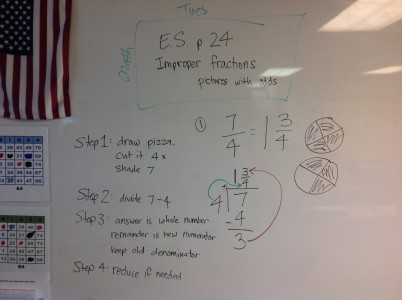 Tues
Math
E.S. p 24
Improper fractions
pictures with
① 7/4 = 1 3/4
Step 1: draw pizza.
Cut it 4x
Shade 7
Step 2: divide 7÷4
Step 3: answer is whole number
remainder is new numerator
keep old denominator
Step 4: reduce if needed
1 3/4
4 7
- 4
3